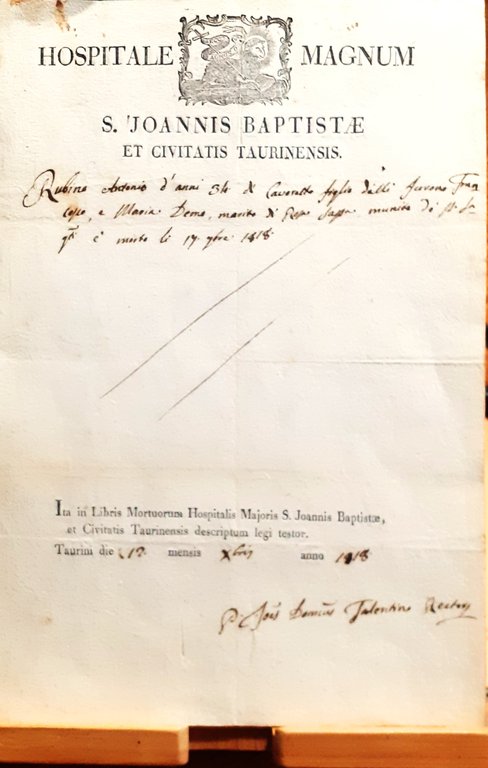 HOSPITALE MAGNUM
S. JOANNIS BAPTISTÆ
ET CIVITATIS TAURINENSIS.
Rubino Antonio d'anni di Cavoretto figlio delli Fran
cesco, e Maria Demo, marito di munito di
è morto li 17 9bre 1818
Ita in Libris Mortuorum Hospitalis Majoris S. Joannis Baptistæ,
et Civitatis Taurinensis descriptum legi testor.
Taurini die 12 mensis Xbris anno 1818
Talentino Rector